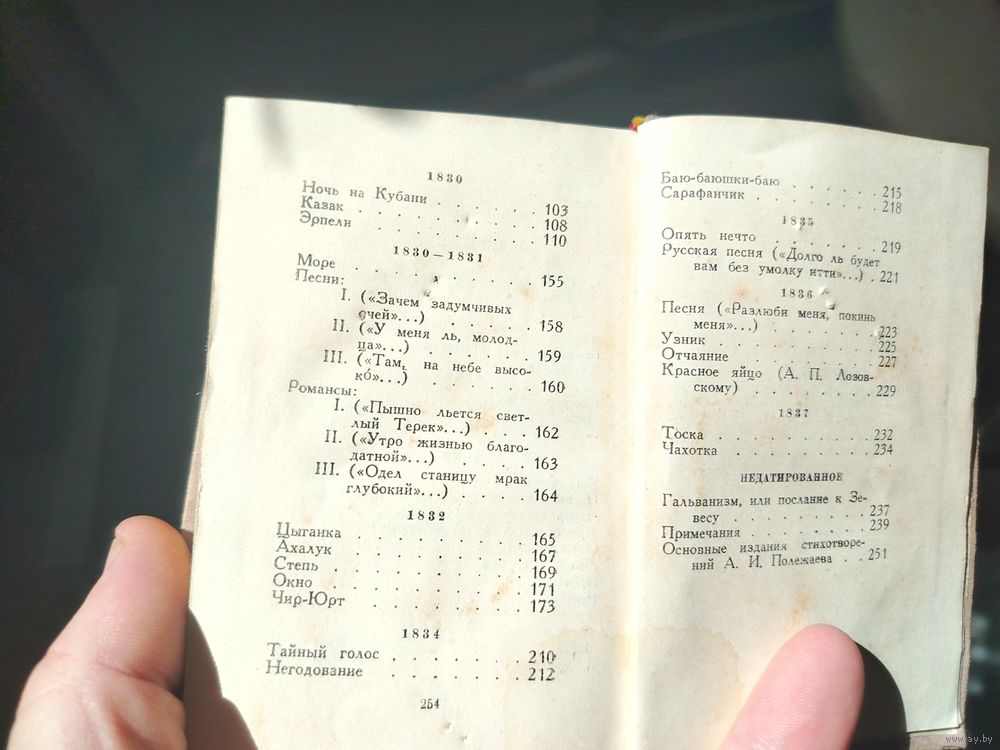 1830
Ночь на Кубани . . . . . . 103
Казак . . . . . . . . . . 108
Эрпели . . . . . . . . . 110
1830—1831
Море . . . . . . . . . . 155
Песни:
I. («Зачем задумчивых
очей»...) . . . . . . 158
II. («У меня ль, молод-
ца»...) . . . . . . . 159
III. («Там, на небе высо-
ко́»...) . . . . . . . 160
Романсы:
I. («Пышно льется свет-
лый Терек»...) . . . 162
II. («Утро жизнью благо-
датной»...) . . . . . 163
III. («Одел станицу мрак
глубокий»...) . . . . 164
1832
Цыганка . . . . . . . . . 165
Ахалук . . . . . . . . . 167
Степь . . . . . . . . . . 169
Окно . . . . . . . . . . 171
Чир-Юрт . . . . . . . . 173
1834
Тайный голос . . . . . . . 210
Негодование . . . . . . . 212
254
Баю-баюшки-баю . . . . . 215
Сарафанчик . . . . . . . 218
1835
Опять нечто . . . . . . . 219
Русская песня («Долго ль будет
вам без умолку итти»...) . 221
1836
Песня («Разлюби меня, покинь
меня»...) . . . . . . . . 223
Узник . . . . . . . . . . 225
Отчаяние . . . . . . . . 227
Красное яйцо (А. П. Лозов-
скому) . . . . . . . . . 229
1837
Тоска . . . . . . . . . . 232
Чахотка . . . . . . . . . 234
НЕДАТИРОВАННОЕ
Гальванизм, или послание к Зе-
весу . . . . . . . . . . 237
Примечания . . . . . . . . 239
Основные издания стихотворе-
ний А. И. Полежаева . . 251
www.ay.by